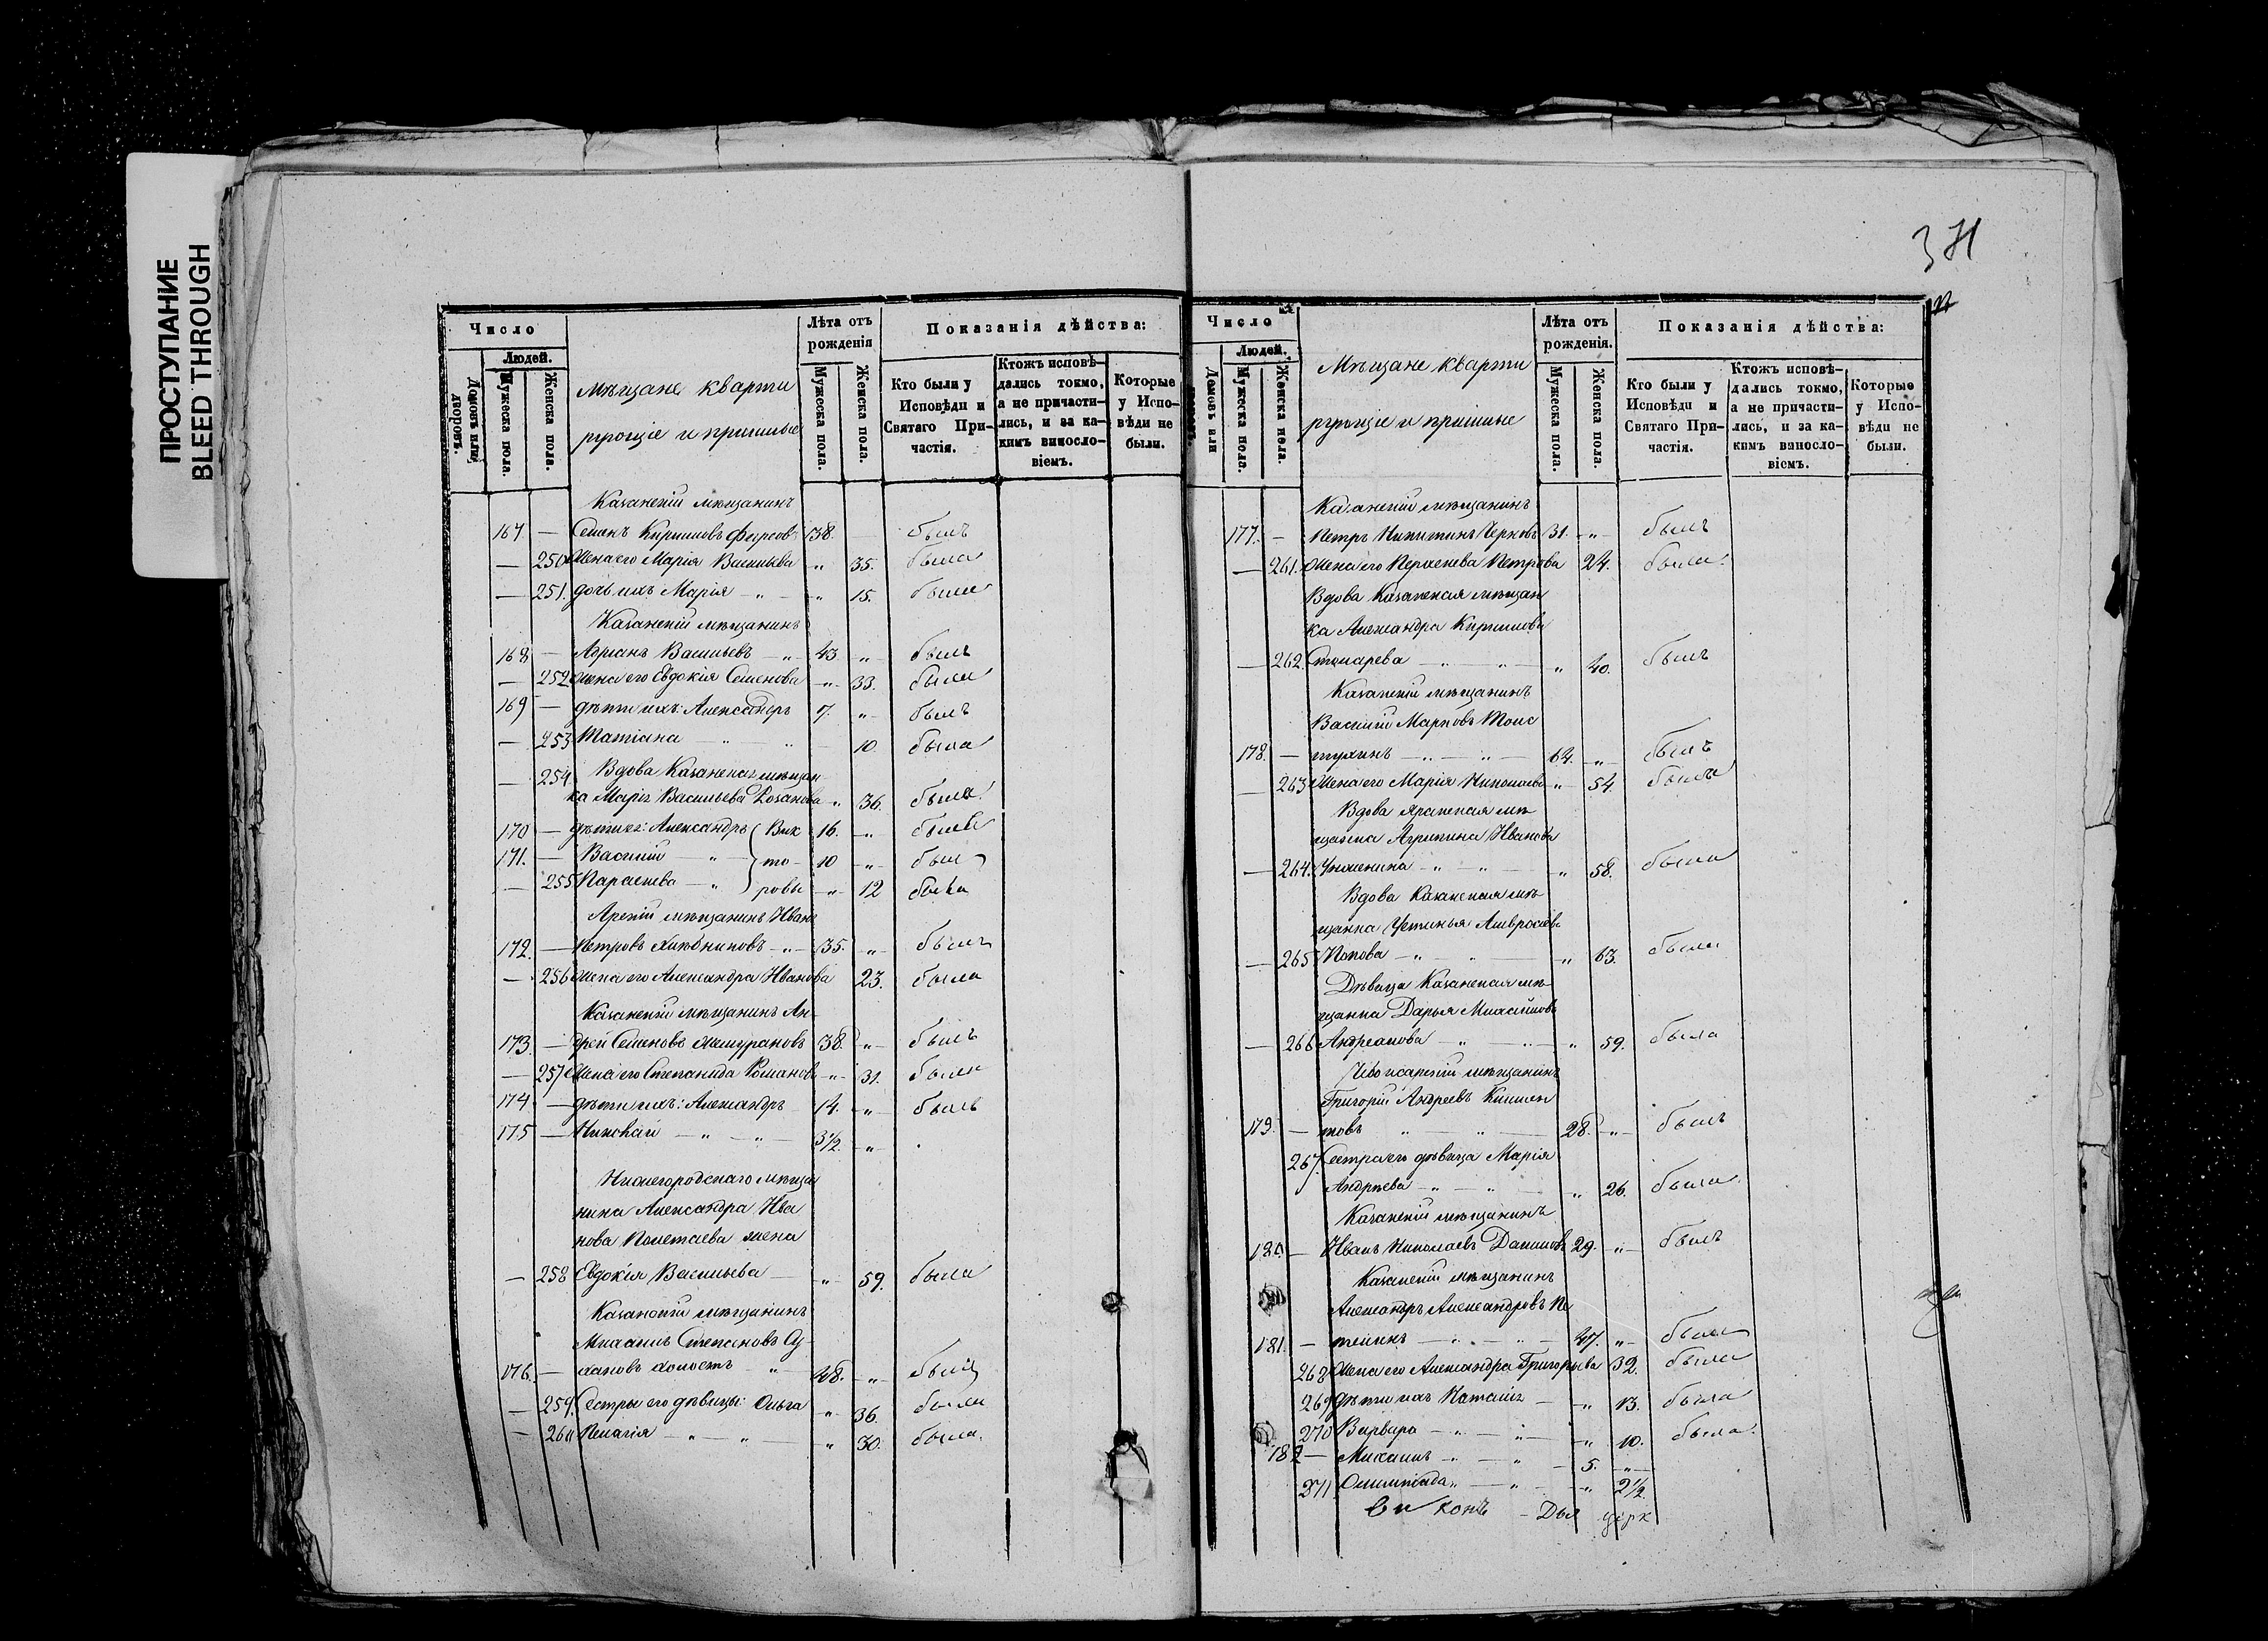 ПРОСТУПАНИЕ
BLEED THROUGH
371
Число
Людей.
Домовъ или дворовъ.
Мужеска пола.
Женска пола.
Мѣщане кварти
рующіе и пришлые
Лѣта отъ рожденія
Мужеска пола.
Женска пола.
Показанія дѣйства:
Кто были у Исповѣди и Святаго Причастія.
Ктожъ исповѣдались токмо, а не причастились, и за какимъ винословіемъ.
Которые у Исповѣди не были.
Казанскій мѣщанинъ
167. — Семенъ Кириловъ 38. былъ
— 250 Жена его Марія Васильева „ 35. была
— 251. дочь ихъ Марія „ „ 15. была
Казанскій мѣщанинъ
168 — Адріанъ Васильевъ „ 43 „ былъ
— 252 Жена его Евдокія Семенова „ 33. была
169 — дѣти ихъ: Александръ 7. „ былъ
— 253 Татіана „ „ 10 была
— 254 Вдова Казанская мѣщан
ка Марія Васильева Розанова „ 36. была
170 — дѣти ея: Александръ Вик 16. „ былъ
171. — Василій „ то 10 „ былъ
— 255 Параскева „ ровы „ 12 была
Арскій мѣщанинъ Иванъ
172. — Петровъ Хлѣбниковъ „ 35. „ былъ
— 256 Жена его Александра Иванова 23. была
Казанскій мѣщанинъ Ан
173. — дрей Семеновъ 38. „ былъ
— 257 Жена его Степанида Романов „ 31. была
174 — дѣти ихъ: Александръ 14. „ былъ
175 — Николай „ „ 3½. „
Нижегородскаго мѣща
нина Александра Ива
нова Полетаева жена
— 258 Евдокія Васильева „ 59. была
Казанскій мѣщанинъ
Михаилъ Степановъ Су
176. — хановъ холостъ „ 48. „ былъ
— 259. Сестры его дѣвицы: Ольга „ 36. была
— 260 Пелагія „ „ „ 30. была.
Число
Людей.
Домовъ или
Мужеска пола.
Женска пола.
Мѣщане кварти
рующіе и пришлые
Лѣта отъ рожденія.
Мужеска пола.
Женска пола.
Показанія дѣйства:
Кто были у Исповѣди и Святаго Причастія.
Ктожъ исповѣдались токмо, а не причастились, и за какимъ винословіемъ.
Которые у Исповѣди не были.
Казанскій мѣщанинъ
177. — Петръ Никитинъ Черновъ 31. „ былъ
— 261. Жена его Параскева Петрова 24. была.
Вдова Казанская мѣщан
ка Александра Кирилова
— 262. „ „ „ 40. былъ
Казанскій мѣщанинъ
Василій Марковъ Толс
178. — тухинъ „ „ 64. „ былъ
— 263 Жена его Марія Николаева „ 54. была
Вдова Арапская мѣ
щанка Агрипина Иванова
— 264. „ „ „ 58. была
Вдова Казанская мѣ
щанка Устинья Амвросіев
— 265 Попова „ „ „ 63. была
Дѣвица Казанская мѣ
щанка Дарья Михайлов
— 266 Андреянова „ „ „ 59. была
мѣщанинъ
Григорій Андреевъ
179. — товъ „ „ 28. „ былъ
267. Сестра его дѣвица Марія
Андреева „ „ „ 26. была.
Казанскій мѣщанинъ
180. — Иванъ Николаевъ Даниловъ 29. „ былъ
Казанскій мѣщанинъ
Александръ Александровъ Пе
181. — телинъ „ „ 47. „ былъ
268 Жена его Александра Григорьева 32. была
269 дѣти ихъ Наталія „ 13. была
270 Варвара „ „ „ 10. была.
182 — Михаилъ „ „ 5. „
271 Олимпіада „ „ „ 2½.